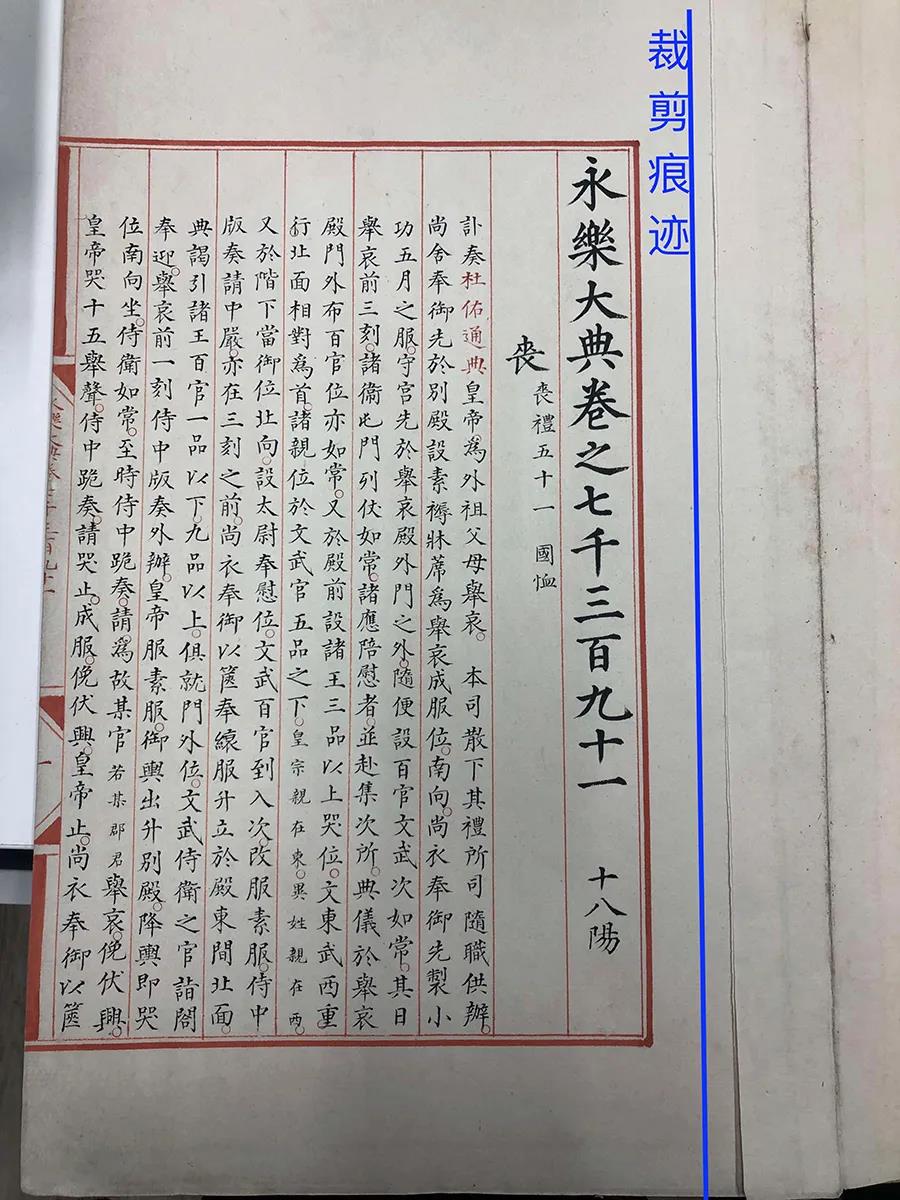 裁剪痕迹
永樂大典卷之七千三百九十一 十八陽
喪 喪禮五十一 國恤
訃奏杜佑通典皇帝為外祖父母舉哀。本司散下其禮所司隨職供辦。
尚舍奉御先於別殿設素褥牀席為舉哀成服位。南向。尚衣奉御先製小
功五月之服。守宮先於舉哀殿外門之外。隨便設百官文武次如常。其日
舉哀前三刻。諸衛屯門列仗如常。諸應陪慰者。並赴集次所。典儀於舉哀
殿門外布百官位亦如常。又於殿前設諸王三品以上哭位。文東武西重
行北面相對為首。諸親位於文武官五品之下。皇宗親在東。異姓親在西。
又於階下當御位北向。設太尉奉慰位。文武百官到入次改服素服。侍中
版奏請中嚴。亦在三刻之前。尚衣奉御以篋奉縗服升立於殿東間北面。
典謁引諸王百官一品以下。九品以上。俱就門外位。文武侍衛之官詣閤
奉迎。舉哀前一刻侍中版奏外辦。皇帝服素服。御輿出升別殿。降輿即哭
位南向坐。侍衛如常。至時侍中跪奏。請為故某官若某郡君舉哀。俛伏興。
皇帝哭十五舉聲。侍中跪奏。請哭止。成服。俛伏興。皇帝止。尚衣奉御以篋